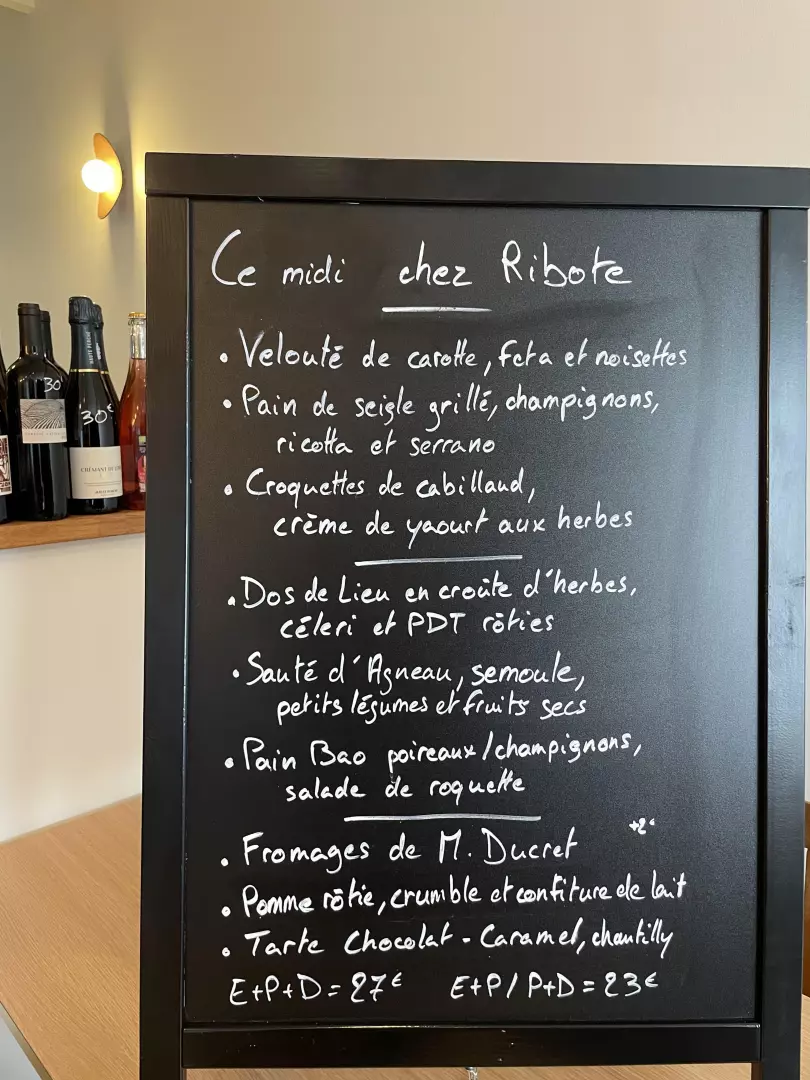 Ce midi chez Ribote
• Velouté de carotte, feta et noisettes
• Pain de seigle grillé, champignons,
ricotta et serrano
• Croquettes de cabillaud,
crème de yaourt aux herbes
• Dos de Lieu en croûte d'herbes,
céleri et PDT rôties
• Sauté d'Agneau, semoule,
petits légumes et fruits secs
• Pain Bao poireaux/champignons,
salade de roquette
+2€
• Fromages de M. Ducret
• Pomme rôtie, crumble et confiture de lait
• Tarte Chocolat - Caramel, chantilly
E+P+D = 27€ E+P / P+D = 23€
30
30€